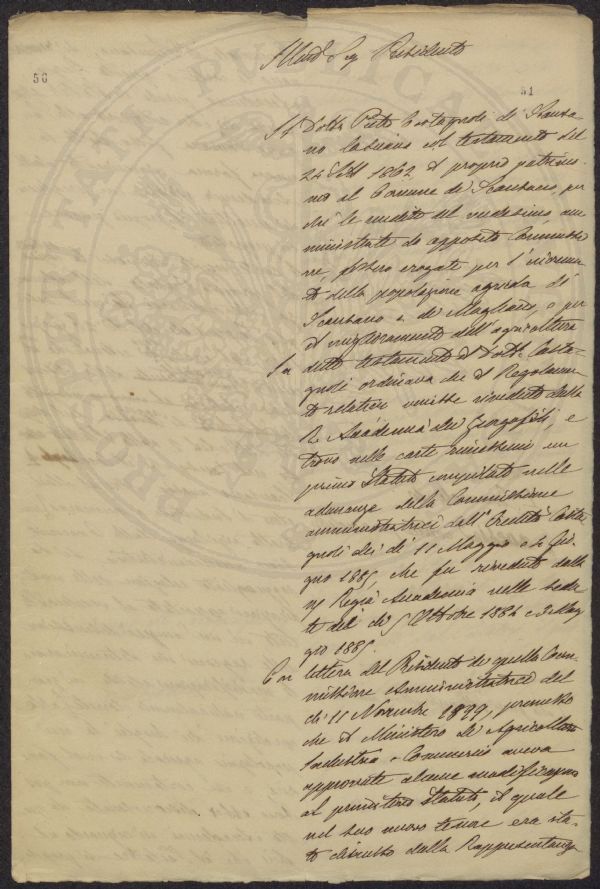 Illmo Sig. Presidente
50
51
Il Dott. Pietro Castagnoli di Scansa-
no lasciava col testamento del
24 1862 il proprio patrimo-
nio al Comune di Scansano, per
chè le rendite del medesimo, am
ministrate da apposita Commissio
ne, fossero erogate per l'increm
to della popolazione agricola di
Scansano e di Magliano, o per
il miglioramento dell'agricoltura
In detto testamento il Dott. Casta-
gnoli ordinava che il Regolamen
to relativo venisse riveduto dalla
R. Accademia dei Georgofili, e
trovo nelle carte un
primo Statuto compilato nelle
adunanze della Commissione
amministratrice dell'Eredità Casta
gnoli dei dì 11 Maggio e Giu
gno 1885, che fu riveduto dalla
Regia Accademia nelle sedu
te del dì 5 Ottobre 1884 e 3 Mag
gio 1885.
Con lettera del Presidente di quella Com
missione Amministratrice del
dì 11 Novembre 1899, premesso
che il Ministero di Agricoltura
Industria e Commercio aveva
approvate alcune modificazioni
al primitivo Statuto, il quale
nel suo nuovo tenore era sta-
to discusso dalla Rappresentanza